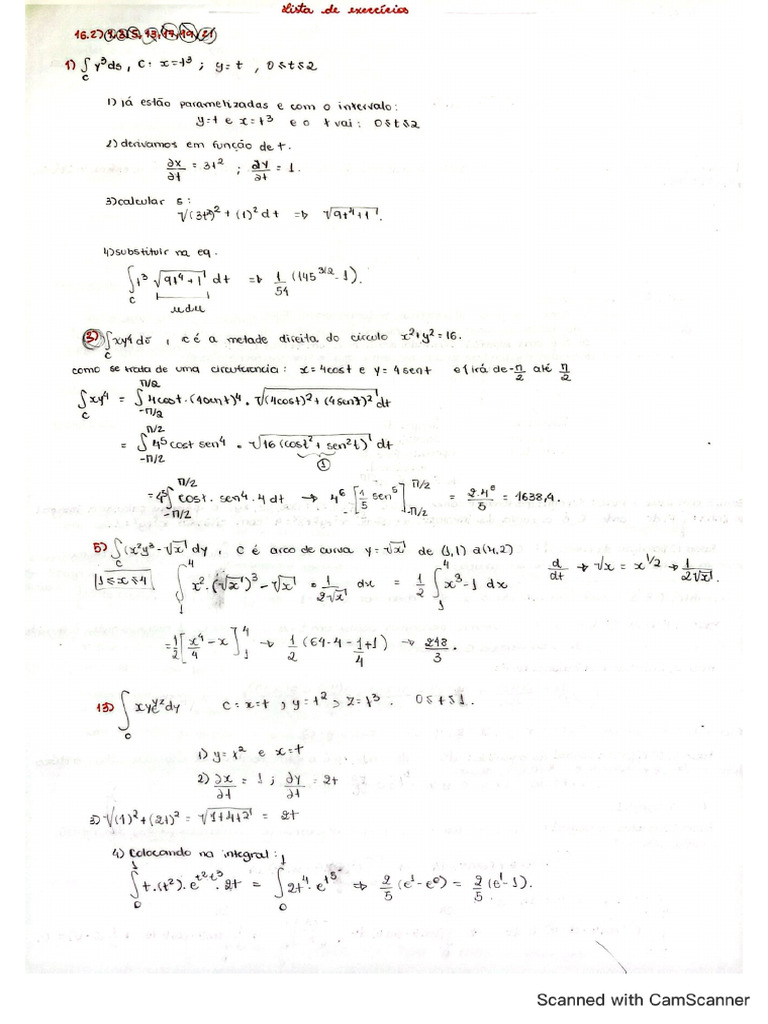 Lista de exercícios
16.2) 1, 3, 5, 13, 17, 19, 21
1) ∫_C y³ds, C: x=t³ ; y=t , 0≤t≤2
1) Já estão parametrizadas e com o intervalo:
y=t e x=t³ e o t vai: 0≤t≤2
2) derivamos em função de t.
∂x/∂t = 3t² ; ∂y/∂t = 1.
3) calcular s:
√(3t²)² + (1)² dt ⇒ √9t⁴+1.
4) substituir na eq.
∫_C t³ √9t⁴+1 dt ⇒ 1/54 (145^3/2 - 1).
udu
3) ∫_C xy⁴ds , C é a metade direita do círculo x²+y²=16.
como se trata de uma circunferência: x=4cost e y=4sent e t irá de -π/2 até π/2
∫_C xy⁴ = ∫_-π/2^π/2 4cost.(4sent)⁴ . √(4cost)²+(4sent)² dt
= ∫_-π/2^π/2 4⁵cost sen⁴ . √16(cost²+sen²t) dt
1
=4⁵∫_-π/2^π/2 cost. sen⁴. 4 dt → 4⁶ [1/5 sen⁵]_-π/2^π/2 = 2.4⁶/5 = 1638,4.
5) ∫_C (x²y³-√x dy , C é arco de curva y=√x de (1,1) a (4,2)
1≤x≤4 ∫_1^4 x².(√x)³-√x . 1/2√x dx = 1/2 ∫_1^4 x³-1 dx d/dt → √x = x^1/2 → 1/2√x.
=1/2 [x⁴/4 - x]_1^4 → 1/2 (64-4-1/4+1) → 243/3.
13) ∫_C xye^yz dy C=x=t , y=t² , z=t³. 0≤t≤1.
1) y=t² e x=t
2) ∂x/∂t = 1 ; ∂y/∂t = 2t
3) √(1)²+(2t)² = √1+4t² = 2t
4) Colocando na integral:
∫_0^1 t.(t²).e^t²t³.2t = ∫_0^1 2t⁴.e^t⁵ ⇒ 2/5 (e¹-e⁰) = 2/5 (e¹-1).
Scanned with CamScanner